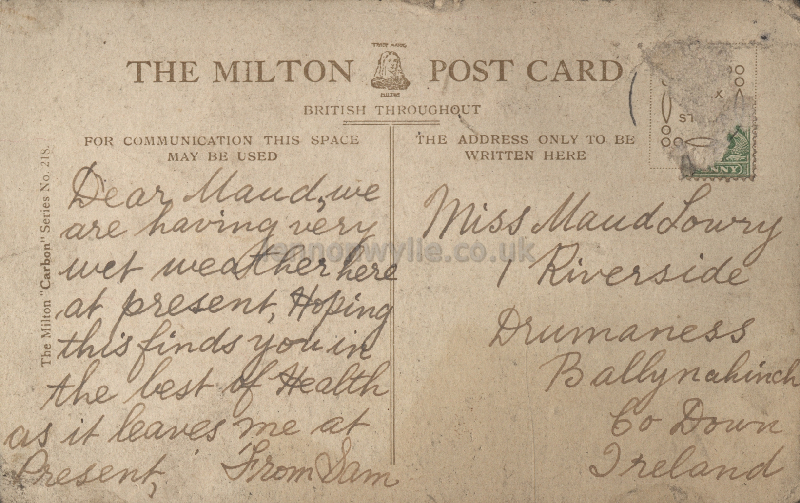 THE MILTON POST CARD
BRITISH THROUGHOUT
FOR COMMUNICATION THIS SPACE
MAY BE USED
THE ADDRESS ONLY TO BE
WRITTEN HERE
The Milton "Carbon" Series No. 218.
Dear Maud, we
are having very
wet weather here
at present, Hoping
this finds you in
the best of Health
as it leaves me at
Present, From Sam
Miss Maud Lowry
1 Riverside
Drumaness
Ballynahinch
Co Down
Ireland
NNY
vennonwylie.co.uk